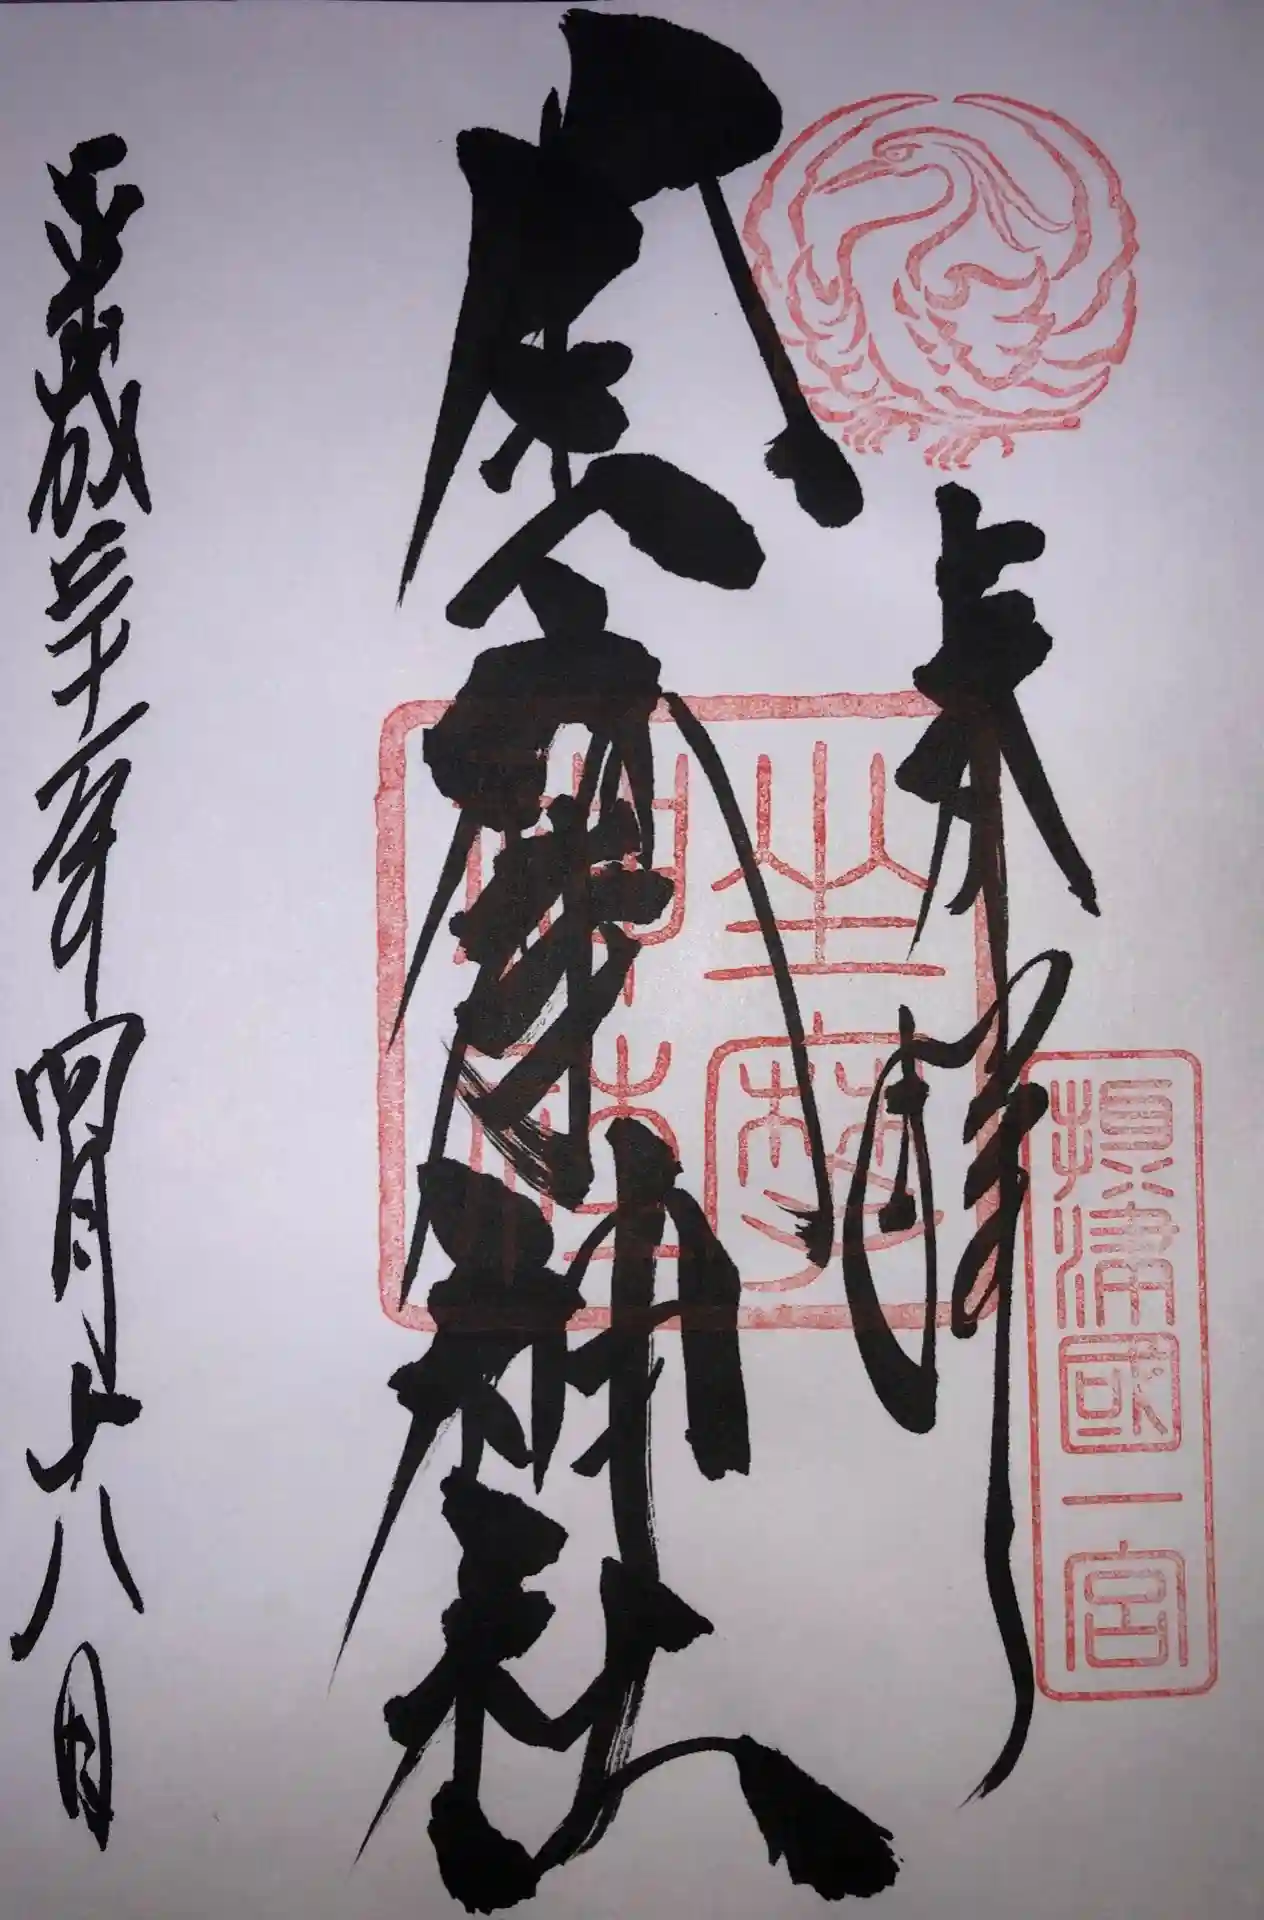 奉拝
摂津國一宮
座摩神社
坐摩
神社
平成三十一年四月十八日